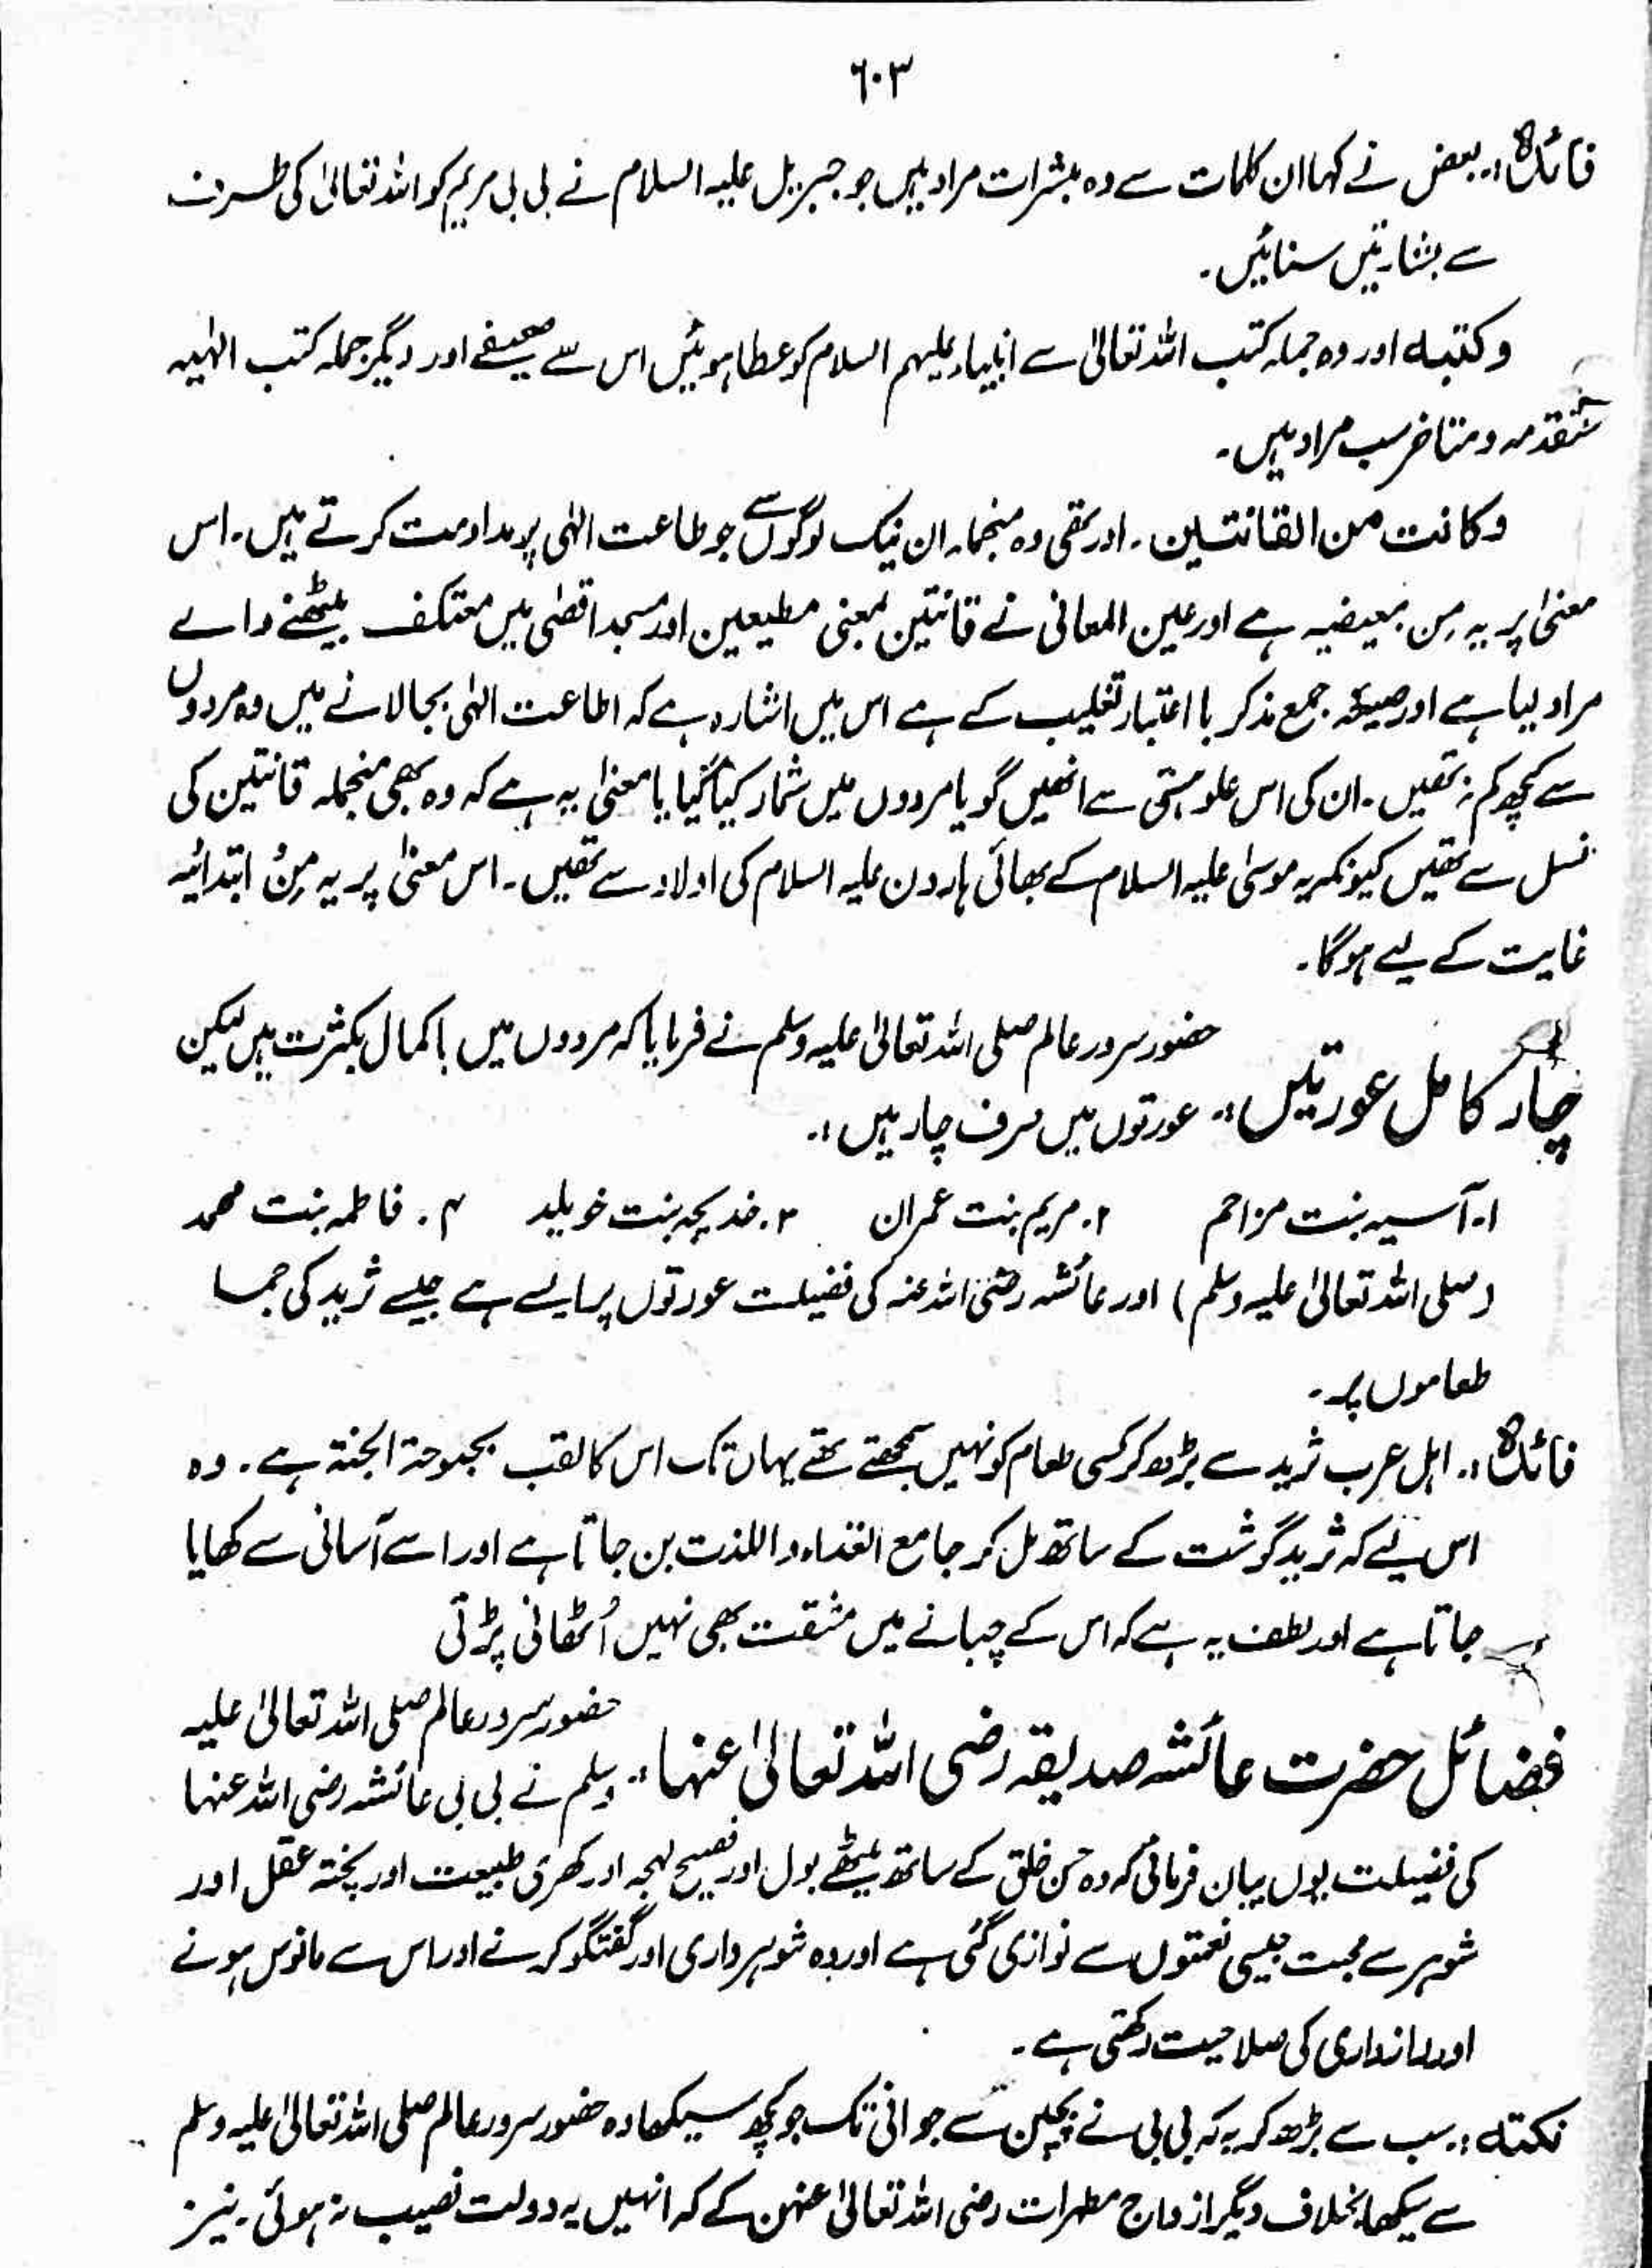 ٦٠٣
فائدہ:۔ بعض نے کہا ان کلمات سے وہ مبشرات مراد ہیں جو جبریل علیہ السلام نے بی بی مریم کو اللہ تعالیٰ کی طرف
سے بشارتیں سنائیں۔
وکتبہ اور وہ جملہ کتب اللہ تعالیٰ سے انبیاء علیہم السلام کو عطا ہوئیں اس سے صحیفے اور دیگر جملہ کتب الٰہیہ
متقدمہ و متاخر سب مراد ہیں۔
وکانت من القانتین۔ اور تھی وہ منجملہ ان نیک لوگوں سے جو طاعت الٰہی پر مداومت کرتے ہیں۔ اس
معنیٰ پر یہ مِن تبعیضیہ ہے اور عین المعانی نے قانتین بمعنی مطیعین اور مسجد اقصٰی میں معتکف بیٹھنے والے
مراد لیا ہے اور صیغہ جمع مذکر با اعتبار تغلیب کے ہے اس میں اشارہ ہے کہ اطاعت الٰہی بجالانے میں وہ مردوں
سے کچھ کم نہ تھیں۔ ان کی اس علو ہمتی سے انھیں گویا مردوں میں شمار کیا گیا یا معنیٰ یہ ہے کہ وہ بھی منجملہ قانتین کی
نسل سے تھیں کیونکہ یہ موسیٰ علیہ السلام کے بھائی ہارون علیہ السلام کی اولاد سے تھیں۔ اس معنیٰ پر یہ مِنْ ابتدائیہ
غایت کے لیے ہوگا۔
چار کامل عورتیں:۔ حضور سرور عالم صلی اللہ تعالیٰ علیہ وسلم نے فرمایا کہ مردوں میں باکمال بکثرت ہیں لیکن
عورتوں میں صرف چار ہیں:۔
۱۔ آسیہ بنت مزاحم ۲۔ مریم بنت عمران ۳۔ خدیجہ بنت خویلد ۴۔ فاطمہ بنت محمد
(صلی اللہ تعالیٰ علیہ وسلم) اور عائشہ رضی اللہ عنہ کی فضیلت عورتوں پر ایسے ہے جیسے ثرید کی جملہ
طعاموں پر۔
فائدہ:۔ اہل عرب ثرید سے بڑھ کر کسی طعام کو نہیں سمجھتے تھے یہاں تک اس کا لقب بحبوحۃ الجنۃ ہے۔ وہ
اس لیے کہ ثرید گوشت کے ساتھ مل کر جامع الغذاء و اللذت بن جاتا ہے اور اسے آسانی سے کھایا
جاتا ہے اور لطف یہ ہے کہ اس کے چبانے میں مشقت بھی نہیں اُٹھانی پڑتی
فضائل حضرت عائشہ صدیقہ رضی اللہ تعالیٰ عنہا:۔ حضور سرور عالم صلی اللہ تعالیٰ علیہ
وسلم نے بی بی عائشہ رضی اللہ عنہا
کی فضیلت یوں بیان فرمائی کہ وہ حسن خلق کے ساتھ میٹھے بول اور فصیح لہجہ اور کھری طبیعت اور پختہ عقل اور
شوہر سے محبت جیسی نعمتوں سے نوازی گئی ہے اور وہ شوہرداری اور گفتگو کرنے اور اس سے مانوس ہونے
اور رازداری کی صلاحیت رکھتی ہے۔
نکتہ:۔ سب سے بڑھ کر یہ کہ بی بی نے بچپن سے جوانی تک جو کچھ سیکھا وہ حضور سرور عالم صلی اللہ تعالیٰ علیہ وسلم
سے سیکھا بخلاف دیگر ازواج مطہرات رضی اللہ تعالیٰ عنہن کے کہ انہیں یہ دولت نصیب نہ ہوئی۔ نیز